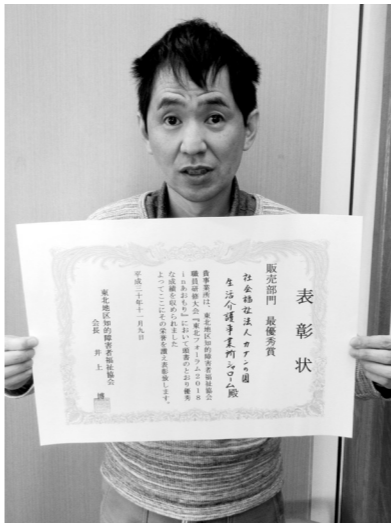 表彰状
販売部門　最優秀賞
社会福祉法人カナンの園
生活介護事業所シャローム殿
貴事業所は、東北地区知的障害者福祉協会
職員研修大会『東北フォーラム2018
inあおもり』において頭書のとおり優秀
な成績を収められました
よってここにその栄誉を讃え表彰致します。
平成三十年十一月九日
東北地区知的障害者福祉協会
会長　井上　博